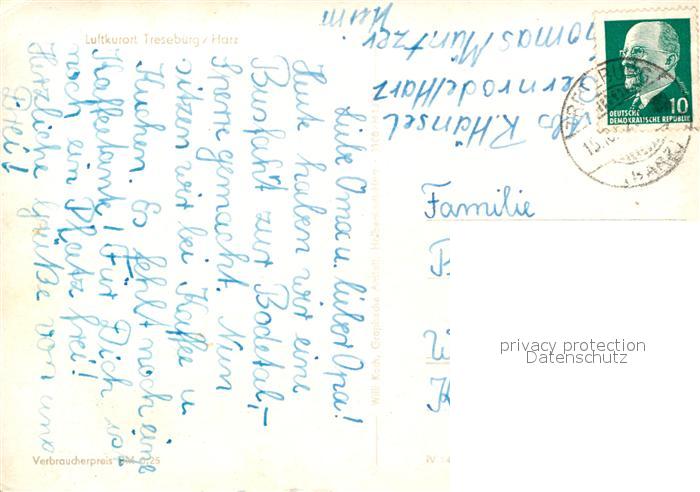 Luftkurort Treseburg / Harz
Liebe Oma u. lieber Opa!
Heute haben wir eine
Busfahrt zur Bodetal,-
Sperre gemacht. Nun
sitzen wir bei Kaffee u
Kuchen. Es fehlt noch eine
Kaffeetante! Für Dich ist
noch ein Platz frei!
Herzliche Grüße von uns
Drei!
Verbraucherpreis DM 0,25
Willi Koch, Graphische Anstalt,
IV 14
Abs R. Hänsel
Gernrode/Harz
Thomas Müntzer
Heim
DEUTSCHE
DEMOKRATISCHE REPUBLIK
10
(HARZ)
Familie
privacy protection
Datenschutz